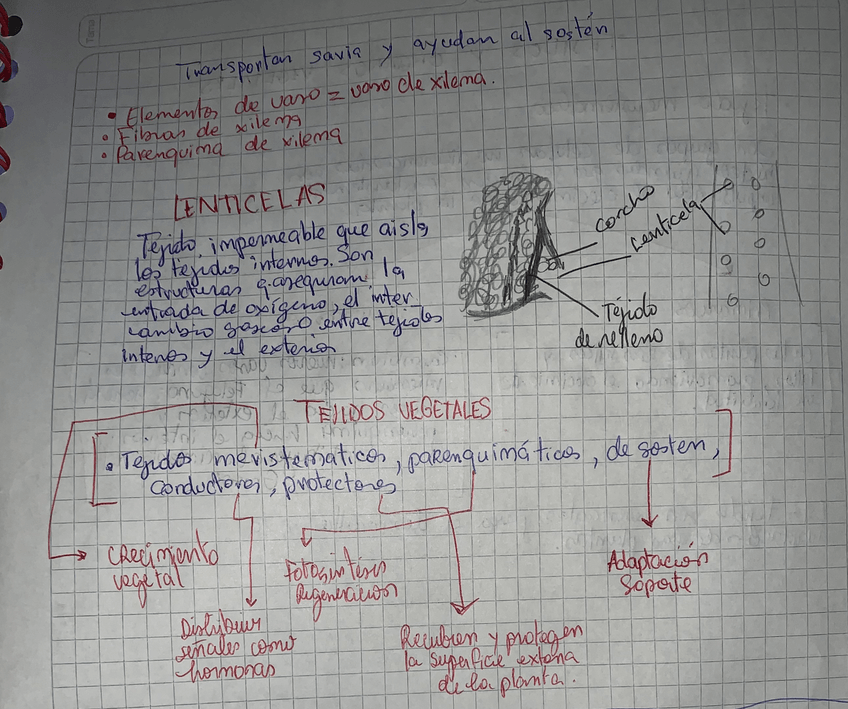 Transportan savia y ayudan al sostén
• Elementos de vaso = vaso de xilema.
• Fibras de xilema
• Parenquima de xilema
LENTICELAS
Tejido impermeable que aisla
los tejidos internos. Son
estructuras q asequran la
entrada de oxígeno, el inter_
cambio gaseoso entre tejidos
internos y el exterior
corcho
Lenticela
Téjido
de relleno
TEJIDOS VEGETALES
• Tejidos meristematicos, parenquimáticos, de sosten,
conductores, protectores
Crecimiento
vegetal
Fotosintesis
Regeneracion
Adaptación
Soporte
Distribuir
señales como
hormonas
Recubren y protegen
la superficie externa
de la planta.